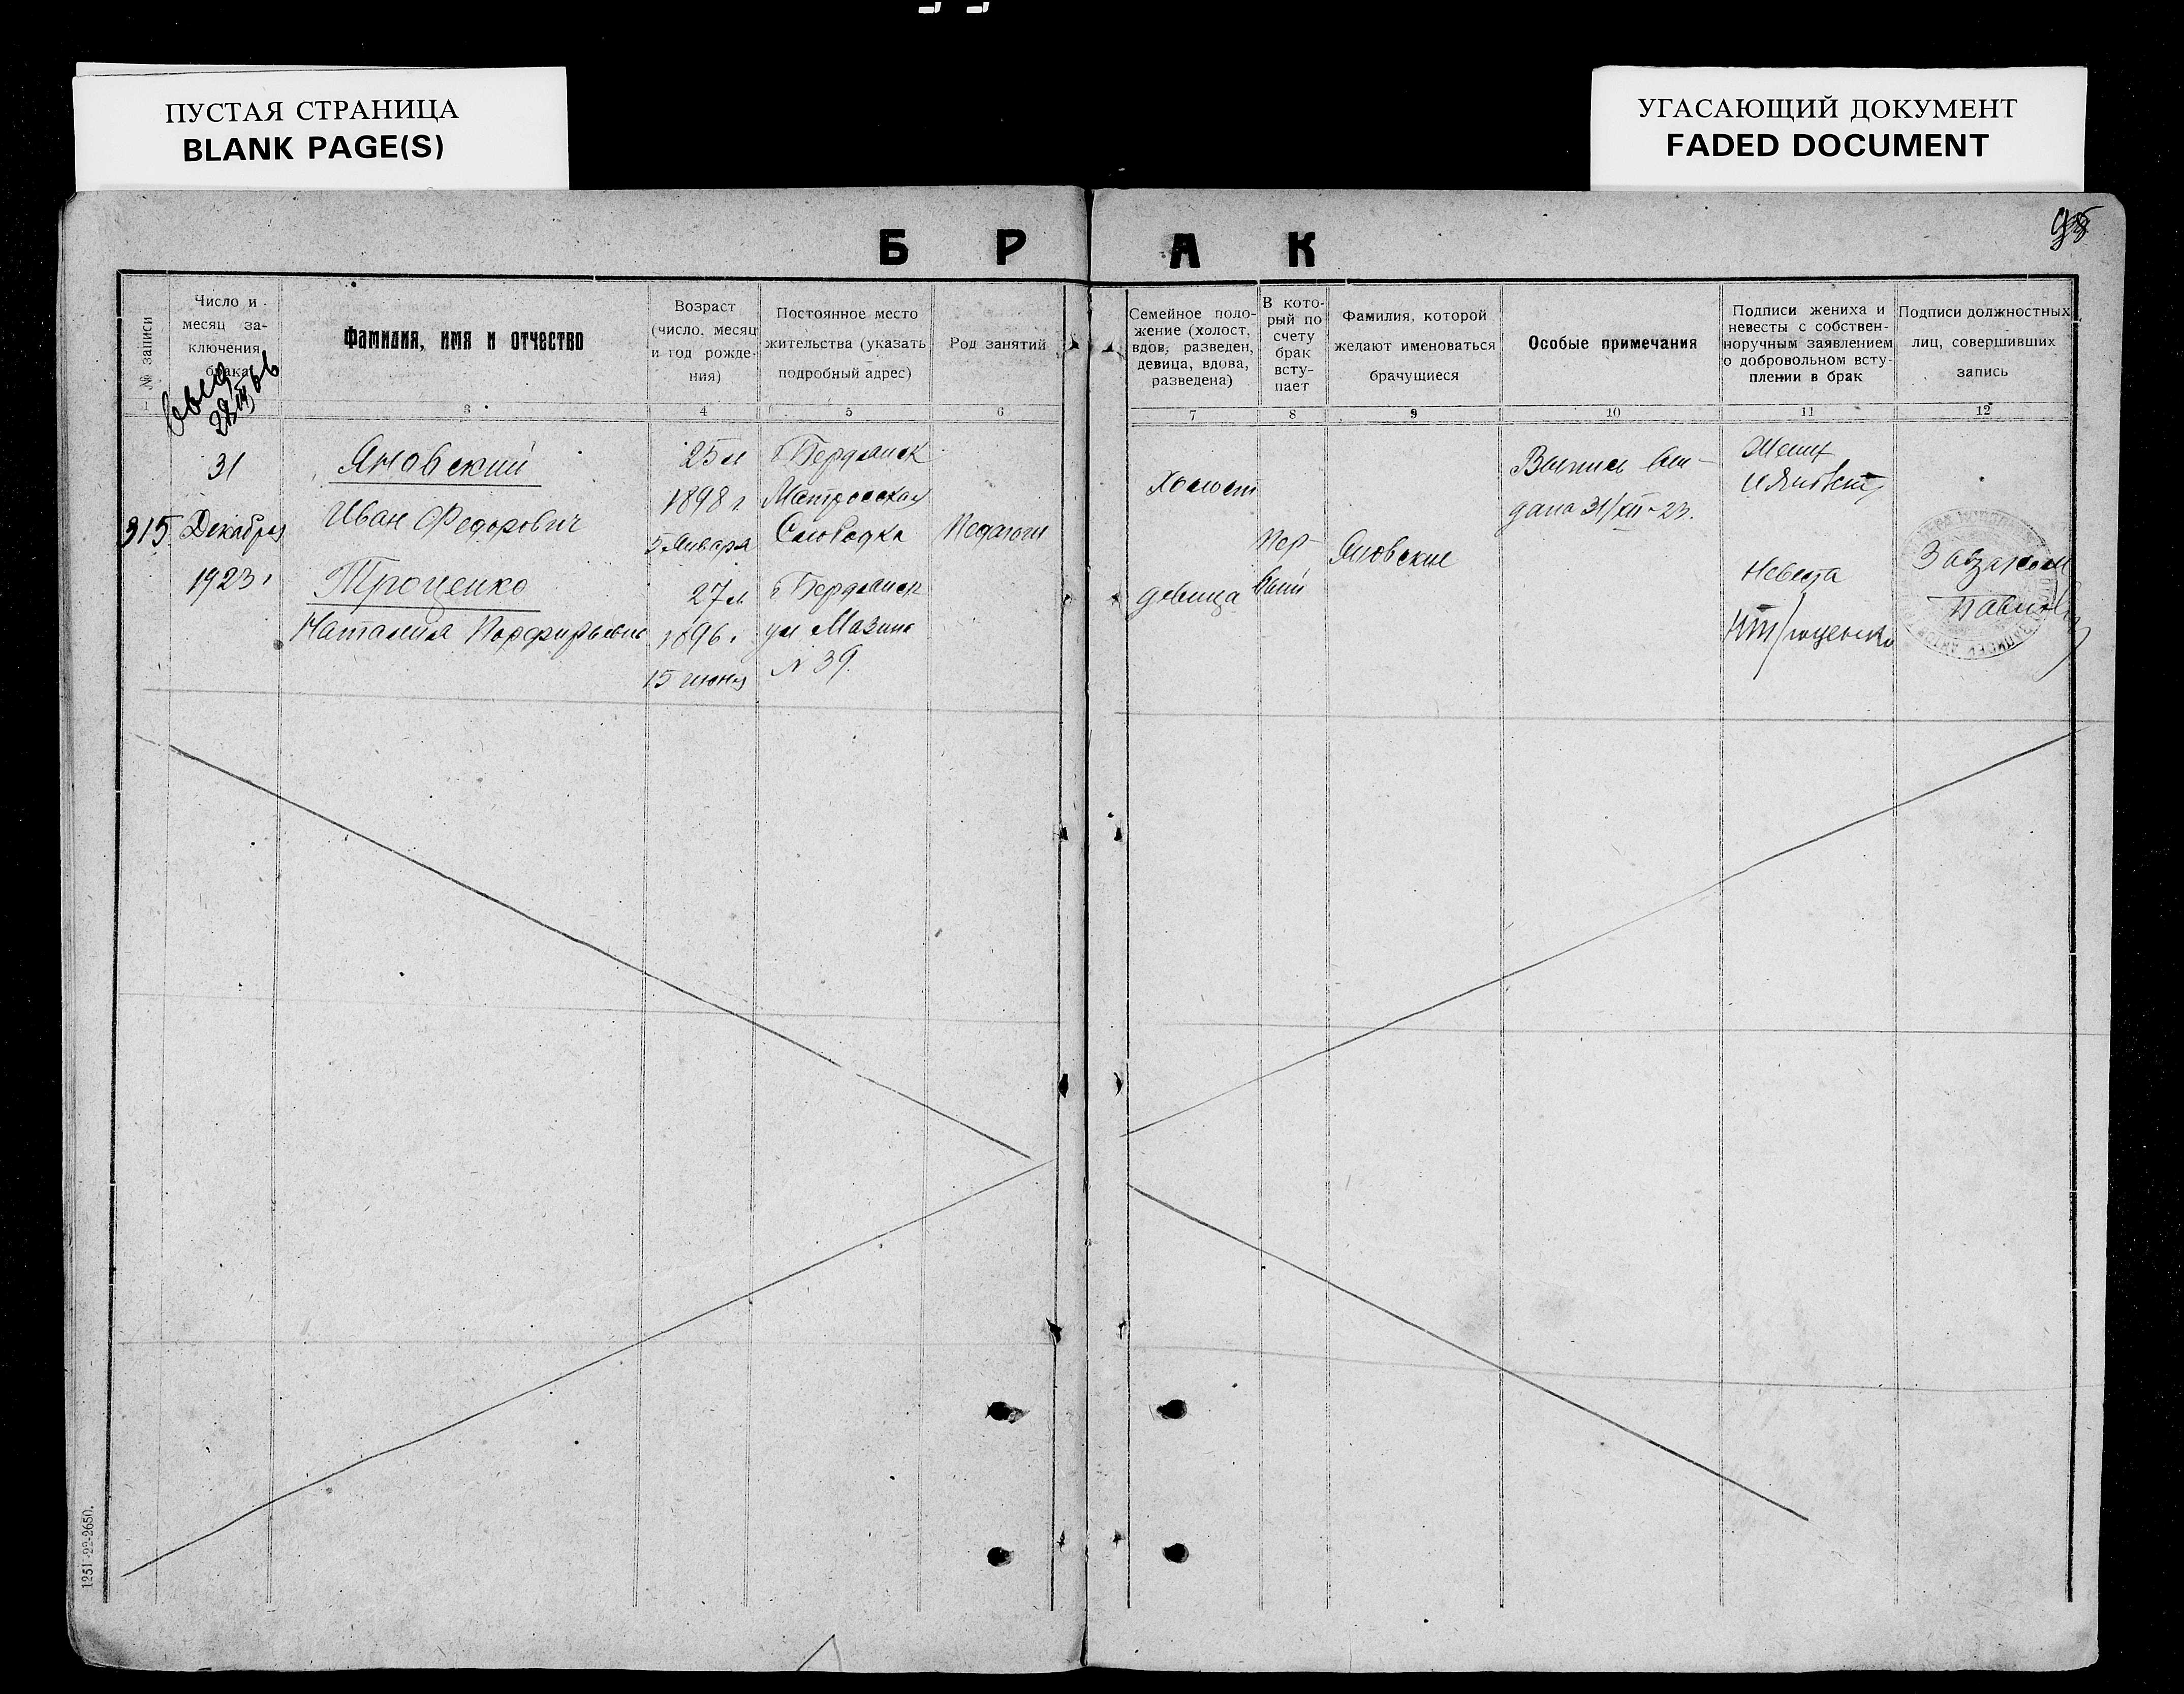 ПУСТАЯ СТРАНИЦА
BLANK PAGE(S)
УГАСАЮЩИЙ ДОКУМЕНТ
FADED DOCUMENT
Б Р А К
№ записи
Число и
месяц за-
ключения
брака
Фамилия, имя и отчество
Возраст
(число, месяц
и год рожде-
ния)
Постоянное место
жительства (указать
подробный адрес)
Род занятий
Семейное поло-
жение (холост,
вдов, разведен,
девица, вдова,
разведена)
В кото-
рый по
счету
брак
всту-
пает
Фамилия, которой
желают именоваться
брачущиеся
Особые примечания
Подписи жениха и
невесты с собствен-
норучным заявлением
о добровольном всту-
плении в брак
Подписи должностных
лиц, совершивших
запись
1 3 4 5 6 7 8 9 10 11 12
315
31
Декабря
1923 г
Яновский
Иван Федорович
Троценко
Наталия Порфирьевна
25 л
1898 г
5 Января
27 л
1896 г
15 июня
Бердянск
Матросская
Слободка
Бердянск
ул Мазина
N 39.
Педагоги
Холост
девица
Пер-
вый
Яновские
Выпись вы-
дана 31/XII-23.
Жених
И Яновский
Невеста
Н Троценко
Завзагсом
1251-22-2650.